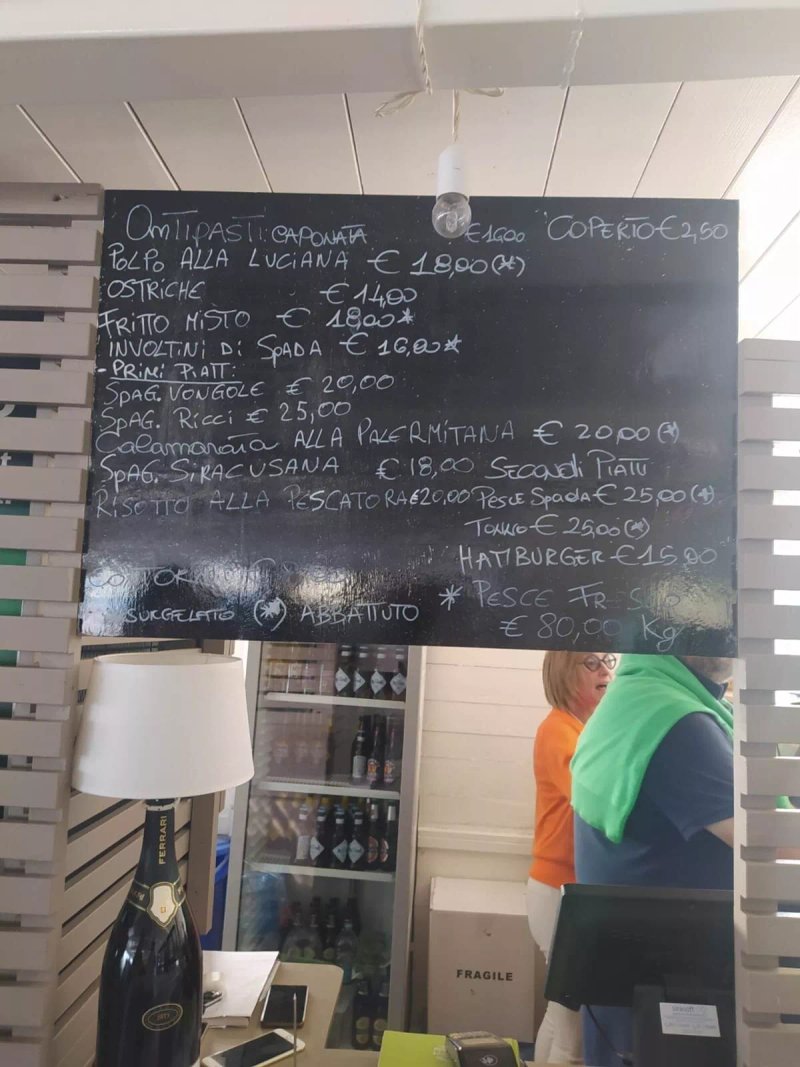 AnTIPASTI: CAPONATA €16,00 COPERTO € 2,50
POLPO ALLA LUCIANA € 18,00 (*)
OSTRICHE € 14,00
FRITTO MISTO € 18,00 *
INVOLTINI DI SPADA € 16,00 *
- PRIMI PIATTI:
SPAG. VONGOLE € 20,00
SPAG. RICCI € 25,00
Calamarata ALLA PALERMITANA € 20,00 (*)
SPAG. SIRACUSANA € 18,00 SECONDI PIATTI
RISOTTO ALLA PESCATORA €20,00 PESCE SPADA € 25,00 (*)
TONNO € 25,00 (*)
HAMBURGER € 15,00
* PESCE FRESCO
SURGELATO (*) ABBATTUTO
€ 80,00 Kg
FERRARI
FRAGILE